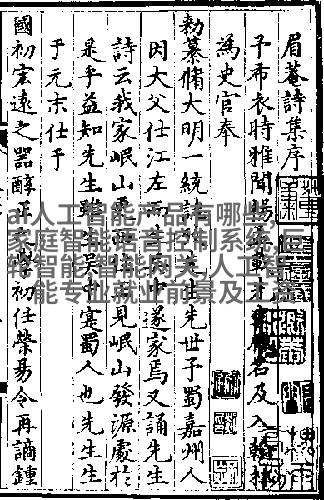 眉菴詩集序
予布衣時雅聞楊
名及入翰林
為史官奉
勑纂脩大明一統
先生先世予蜀嘉州人
因大父仕江左而生
中遂家焉又誦先生
詩云我家岷山
見岷山發源處於
是乎益知先生雖生吴中寔蜀人也先生生
于元末仕于
國初宏遠之器醇正之學初任榮昜令再謫鍾
ai人工智能产品有哪些,
家庭智能语音控制系统,巨
轮智能,智能网关,人工智
能专业就业前景及工资